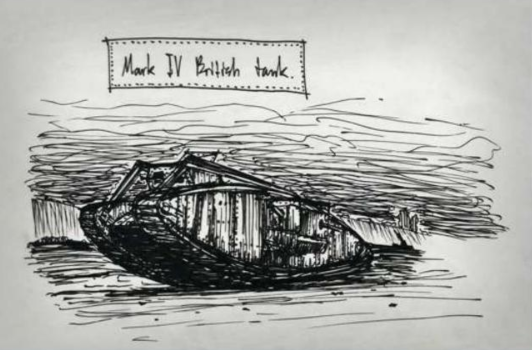 Mark IV British tank.